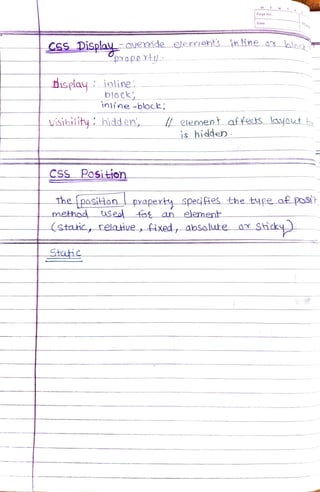 CSS Display - override element's inline or block
property.
Display : inline;
block;
inline-block;
visibility : hidden; // element affects layout
is hidden.
CSS Position
The position property specifies the type of
method used for an element
(static, relative, fixed, absolute or sticky)
Static